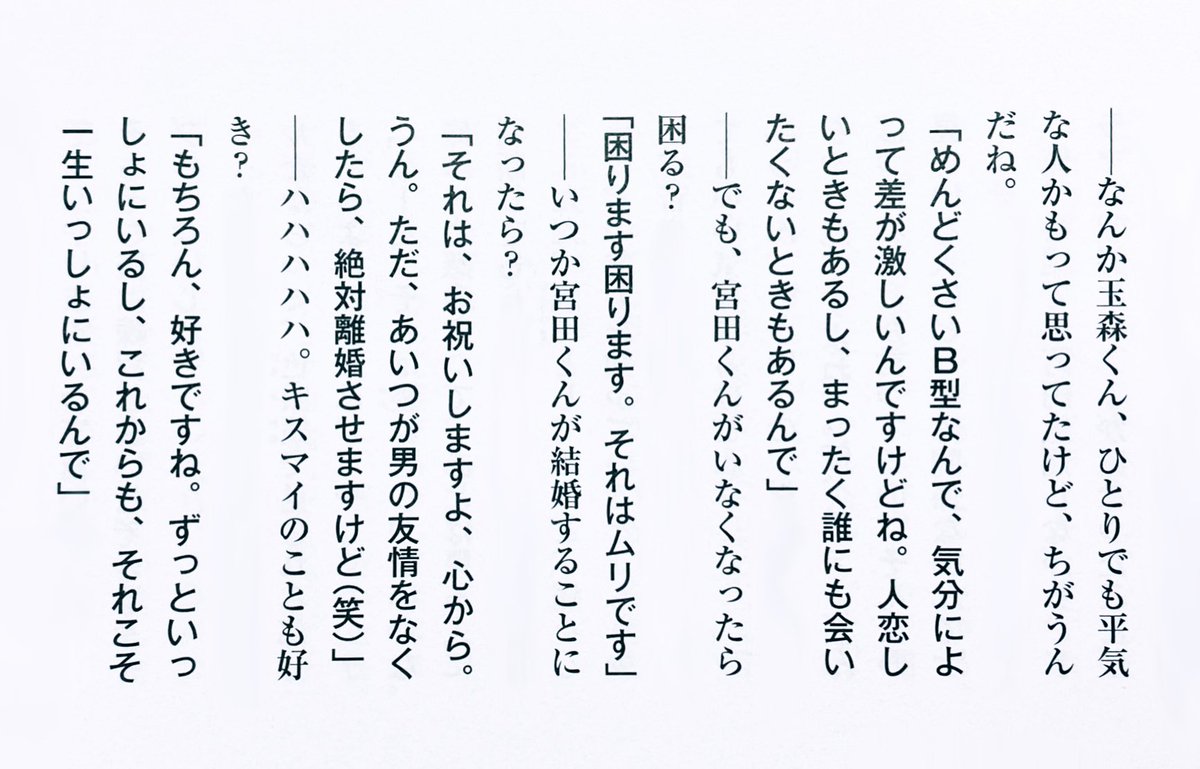 ――なんか玉森くん、ひとりでも平気
な人かもって思ってたけど、ちがうん
だね。
「めんどくさいB型なんで、気分によ
って差が激しいんですけどね。人恋し
いときもあるし、まったく誰にも会い
たくないときもあるんで」
――でも、宮田くんがいなくなったら
困る?
「困ります困ります。それはムリです」
――いつか宮田くんが結婚することに
なったら?
「それは、お祝いしますよ、心から。
うん。ただ、あいつが男の友情をなく
したら、絶対離婚させますけど(笑)」
――ハハハハハ。キスマイのことも好
き?
「もちろん、好きですね。ずっといっ
しょにいるし、これからも、それこそ
一生いっしょにいるんで」